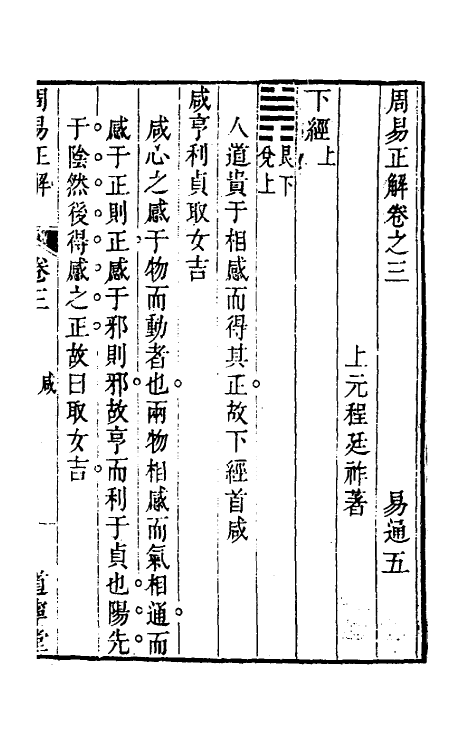 周易正解卷之三　易通五
上元程廷祚著
下經上
䷞艮下兌上
人道貴于相感而得其正故下經首咸
咸亨利貞取女吉
咸心之感于物而動者也兩物相感而氣相通而
感于正則正感于邪則邪故亨而利于貞也陽先
于陰然後得感之正故曰取女吉
周易正解　卷三　咸　道寧堂